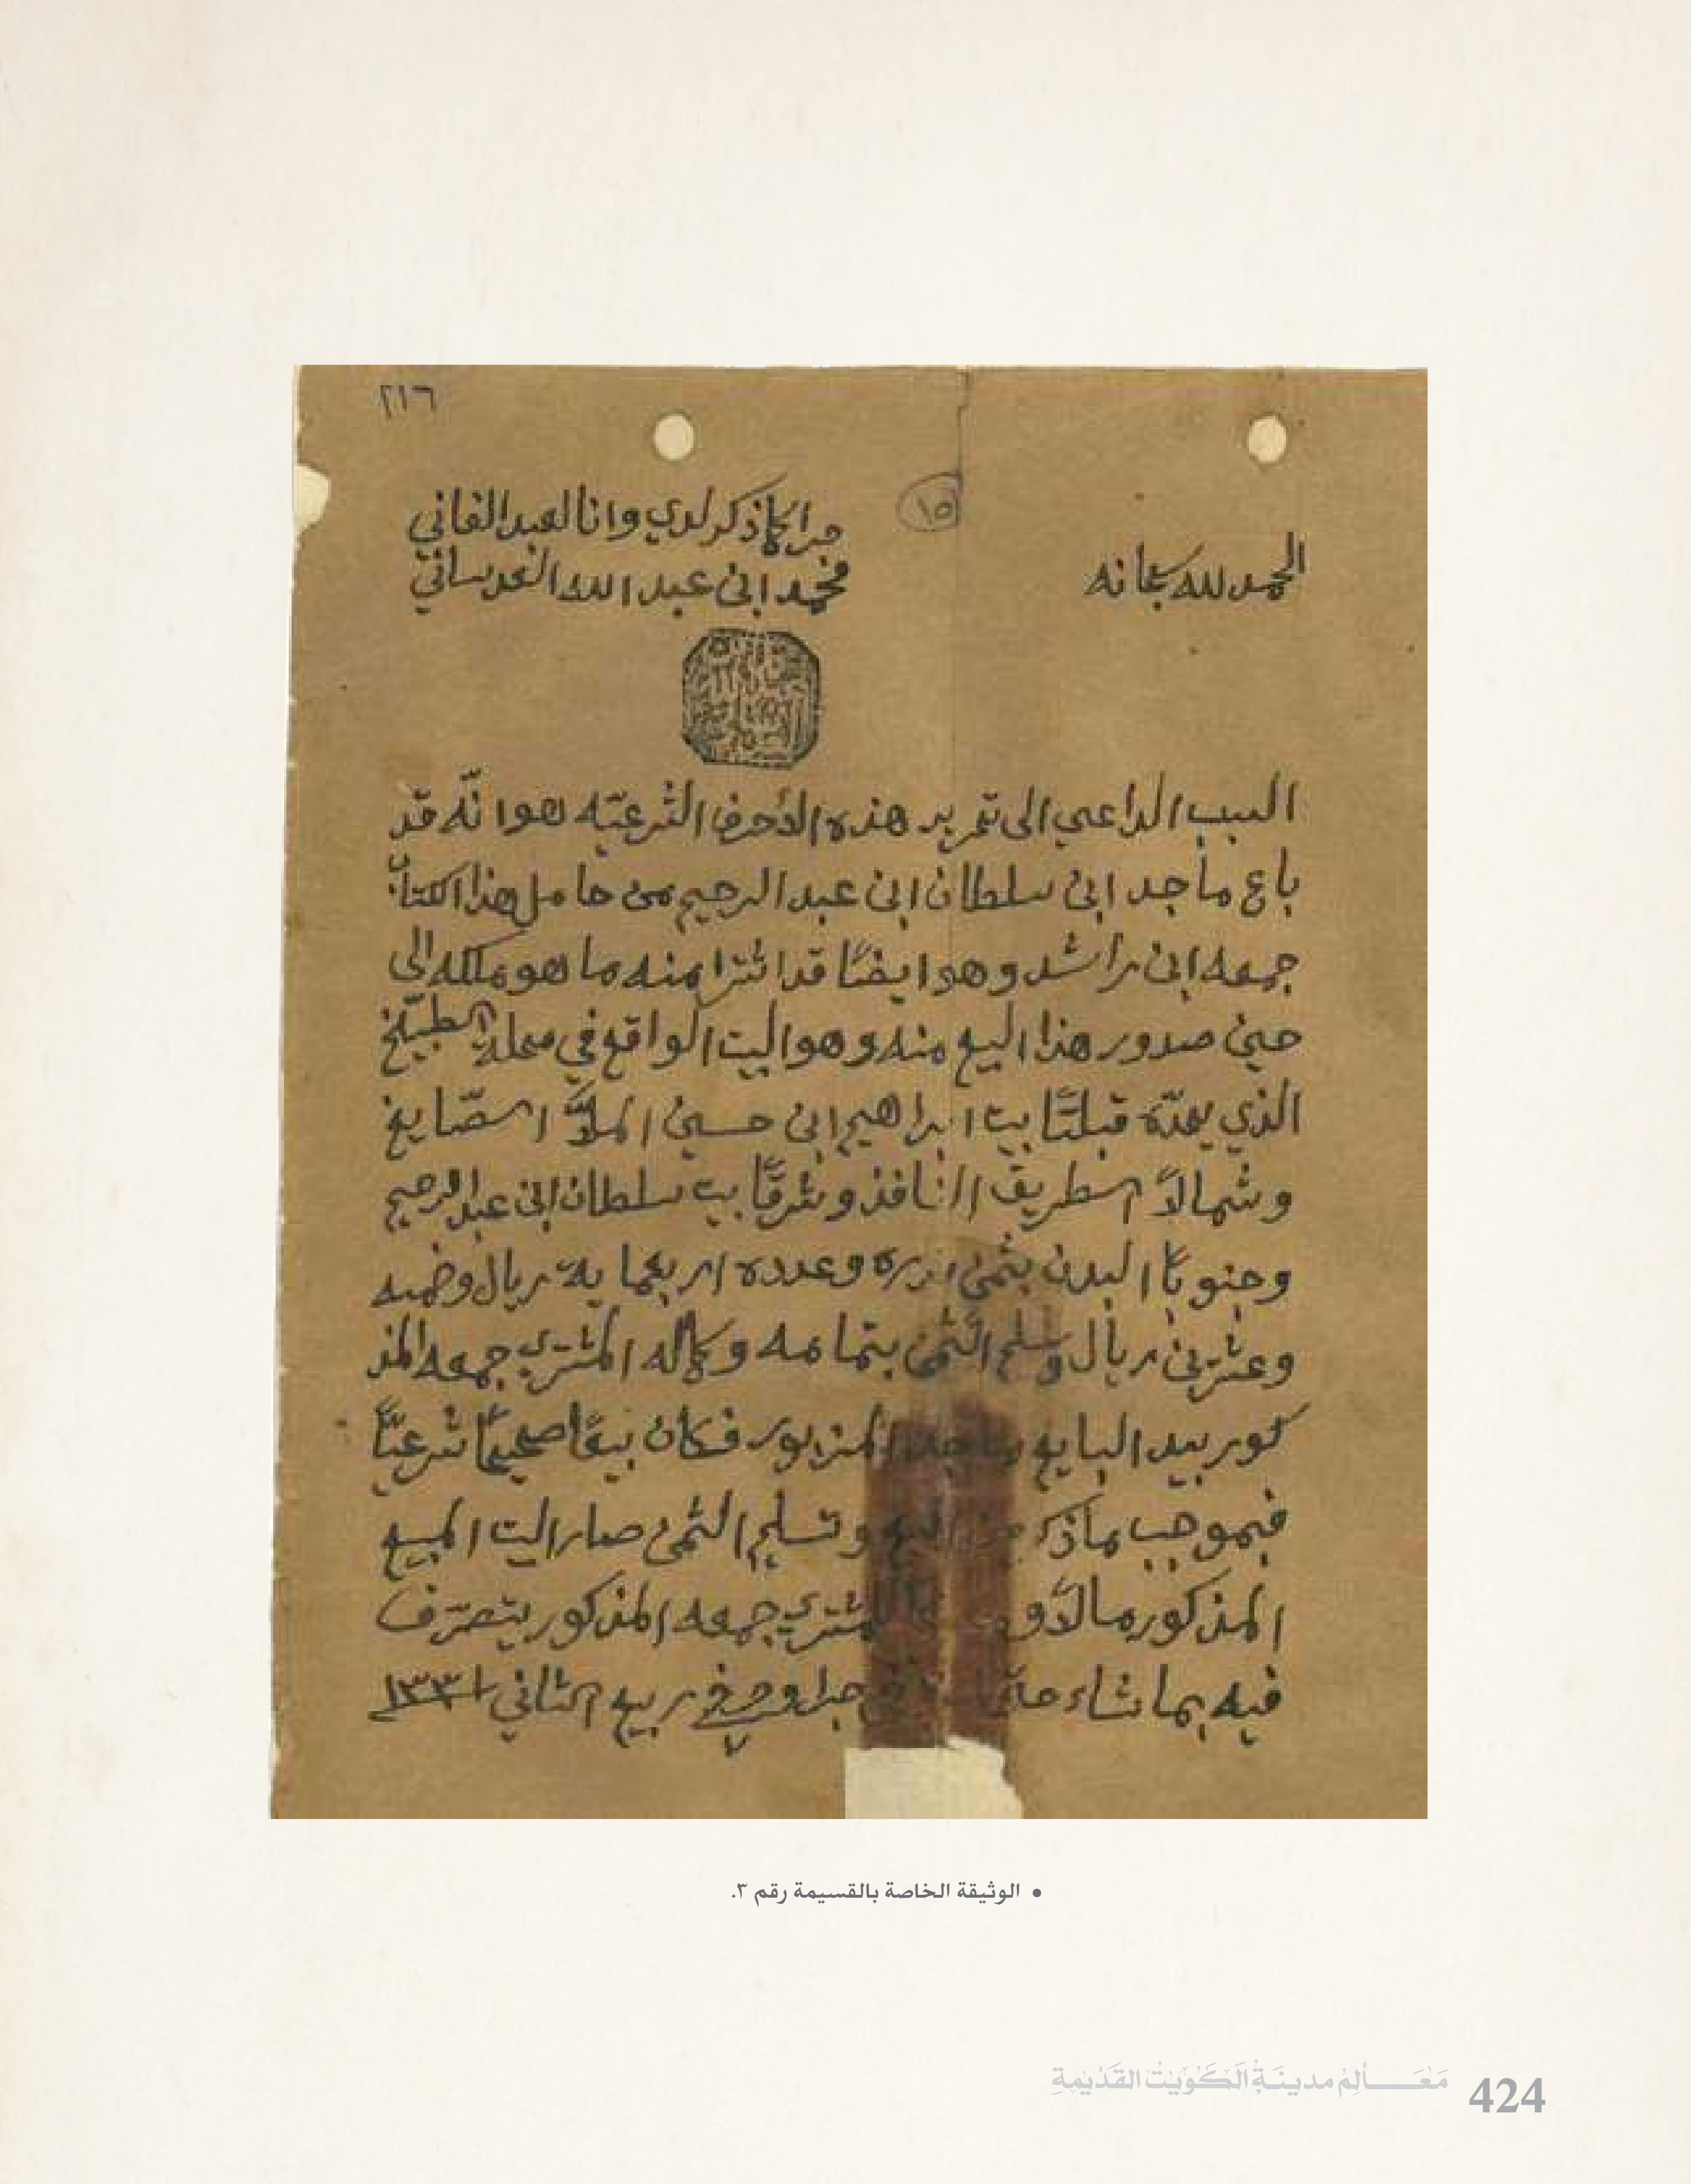 ٢١٦
١٥
الحمد لله سبحانه
جرا كما ذكر لدي وانا العبد الفاني
محمد ابن عبد الله العدساني
السبب الداعي الى تحرير هذه الاحرف الشرعيّه هو انّه قد
باع ماجد ابن سلطان ابن عبد الرحيم من حامل هذا الكتاب
جمعه ابن راشد وهو ايضًا قد اشترا منه ما هو ملكه الى
حين صدور هذا البيع منه وهو البيت الواقع في محلة المطبّخ
الذي يحدّه قبلتًا بيت ابراهيم ابن حسين الملاّ الصّايغ
وشمالاً الطريق النافذ وشرقًا بيت سلطان ابن عبد الرحيم
وجنوبًا البدن بثمن قدره وعدده اربعماية ريال وخمسه
وعشرين ريال وسلم الثمن بتمامه وكماله المشتري جمعه المذ
كور بيد البايع ماجد المزبور فكان بيعًا صحيحًا شرعيًّا
فبموجب ما ذكر من البيع وتسليم الثمن صار البيت المبيع
المذكور مالاً للمشتري جمعه المذكور يتصرّف
فيه بما شاء جرا وحرر في ربيع الثاني ١٣٣١
• الوثيقة الخاصة بالقسيمة رقم ٣.
مَعَالِمُ مدينَةِ الكُوَيْت القَدْيمةِ 424